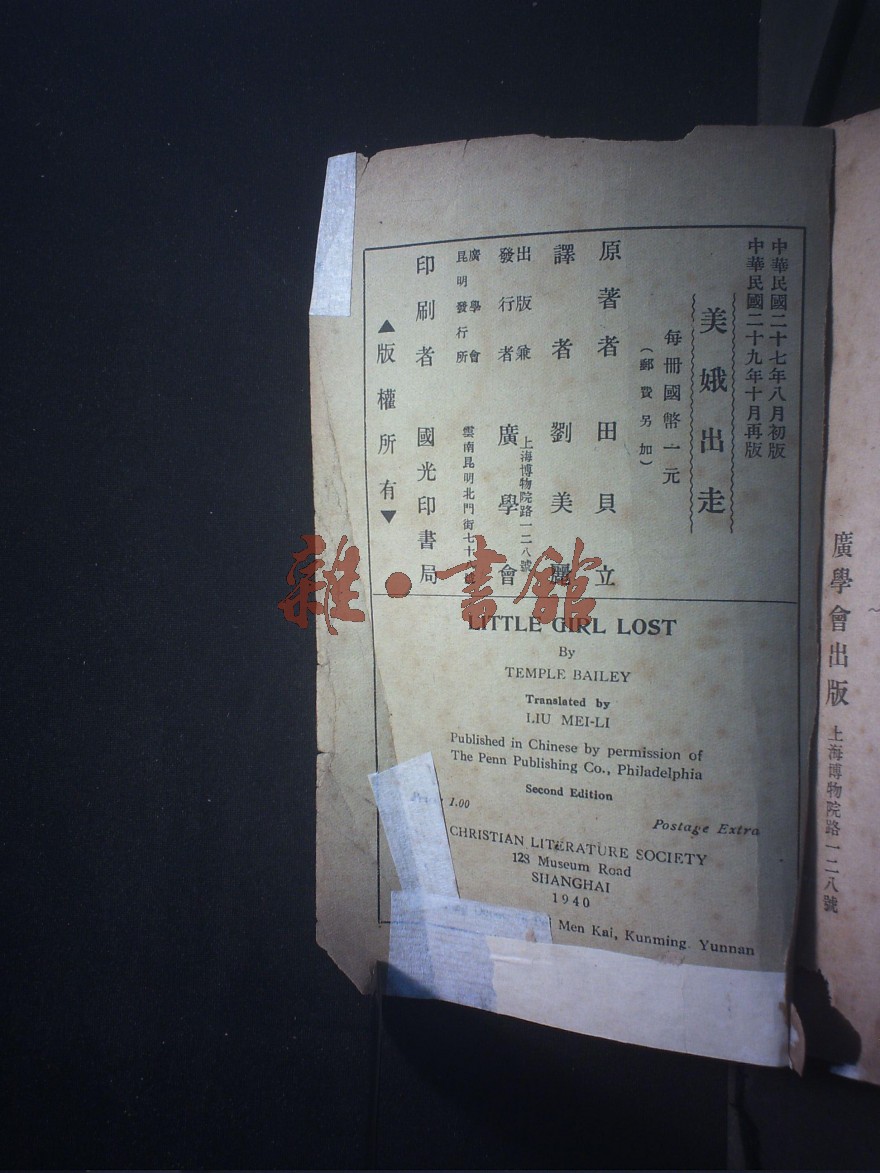 中華民國二十七年八月初版
中華民國二十九年十月再版
美娥出走
每冊國幣一元
(郵費另加)
原著者 田貝立
譯者 劉美麗
出版兼發行者 廣學會
上海博物院路一二八號
廣學會昆明發行所
雲南昆明北門街七十號
印刷者 國光印書局
▲版權所有▼
LITTLE GIRL LOST
By
TEMPLE BAILEY
Translated by
LIU MEI-LI
Published in Chinese by permission of
The Penn Publishing Co., Philadelphia
Second Edition
Price 1.00
Postage Extra
CHRISTIAN LITERATURE SOCIETY
128 Museum Road
SHANGHAI
1940
Men Kai, Kunming. Yunnan
廣學會出版 上海博物院路一二八號
雜·書館